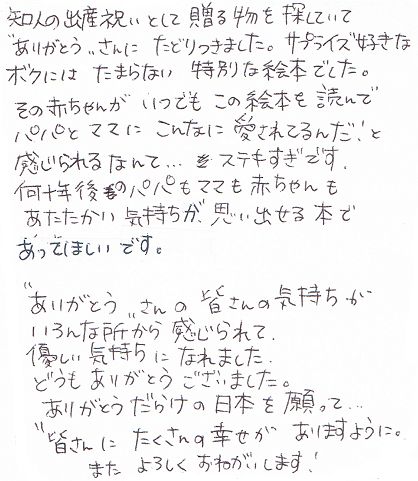 知人の出産祝いとして贈る物を探していて
"ありがとう"さんにたどりつきました。サプライズ好きな
ボクには たまらない 特別な絵本でした。
その赤ちゃんが いつでも この絵本を 読んで
パパとママに こんなに愛されてるんだ!と
感じられるなんて… ステキすぎです.
何十年後のパパもママも赤ちゃんも
あたたかい気持ちが 思い出せる本で
あってほしいです。
"ありがとう"さんの皆さんの気持ちが
いろんな所から感じられて.
優しい気持ちになれました.
どうもありがとうございました。
ありがとうだらけの日本を願って…
"皆さんに たくさんの幸せが ありますように。
また よろしくおねがいします!